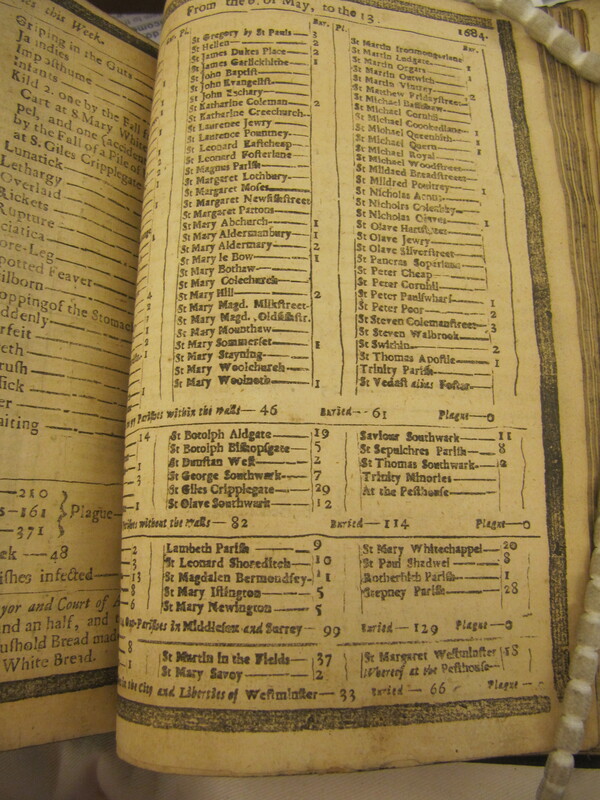 es this Week.
Griping in the Guts
Jaundies
Imposthume
Infants
Kild 2. one by the Fall
Cart at S. Mary White
pel, and one (accident
by the Fall of a Pile of
at S. Giles Cripplegate
Lunatick
Lethargy
Overlaid
Rickets
Rupture
Sciatica
ore-Leg
potted Feaver
ilborn
opping of the Stomac
ddenly
rfeit
eth
rush
sick
er
aiting
210
161 } Plague
371
ek 48
ishes infected
yor and Court of
and an half, and
ushold Bread made
White Bread.
From the 6. of May, to the 13. 1684.
Bur. Pl.
St Gregory by St Pauls 3
St Hellen 2
St James Dukes Place 2
St James Garlickhithe 1
St John Baptist
St John Evangelist
St John Zachary
St Katharine Coleman 2
St Katharine Creechurch
St Laurence Jewry
St Laurence Pountney
St Leonard Eastcheap
St Leonard Fosterlane
St Magnus Parish
St Margaret Lothbury
St Margaret Moses
St Margaret Newfishstreet
St Margaret Pattons
St Mary Abchurch 1
St Mary Aldermanbury 1
St Mary Aldermary 2
St Mary le Bow 1
St Mary Bothaw
St Mary Colechurch
St Mary Hill 2
St Mary Magd. Milkstreet
St Mary Magd. Oldfishstr.
St Mary Mounthaw
St Mary Sommerset 1
St Mary Stayning
St Mary Woolchurch
St Mary Woolnoth 1
St Martin Ironmongerlane
St Martin Ludgate
St Martin Orgars
St Martin Outwich
St Martin Vintrey
St Matthew Fridaystreet
St Michael Bassishaw
St Michael Cornhil
St Michael Crookedlane
St Michael Queenhith 1
St Michael Quern 1
St Michael Royal
St Michael Woodstreet
St Mildred Breadstreet
St Mildred Poultrey 1
St Nicholas Acons
St Nicholas Coleabby
St Nicholas Olaves 1
St Olave Hartstreet
St Olave Jewry
St Olave Silverstreet
St Pancras Soperlane
St Peter Cheap
St Peter Cornhil
St Peter Paulswharf 1
St Peter Poor 2
St Steven Colemanstreet 3
St Steven Walbrook
St Swithin 2
St Thomas Apostle 1
Trinity Parish
St Vedast alias Foster
Parishes within the walls 46 Buried 61 Plague 0
14 St Botolph Aldgate 19
St Botolph Bishopsgate 5
St Dunstan West 2
St George Southwark 7
St Giles Cripplegate 29
St Olave Southwark 12
Saviour Southwark 11
St Sepulchres Parish 8
St Thomas Southwark 2
Trinity Minories
At the Pesthouse
Parishes without the walls 82 Buried 114 Plague 0
2 Lambeth Parish 9
3 St Leonard Shoreditch 10
13 St Magdalen Bermondsey 11
8 St Mary Islington 5
6 St Mary Newington 5
St Mary Whitechappel 20
St Paul Shadwel 8
Rotherhith Parish 1
Stepney Parish 28
Out-Parishes in Middlesex and Surrey 99 Buried 129 Plague 0
8 St Martin in the Fields 37
1 St Mary Savoy 2
St Margaret Westminster 18
Whereof at the Pesthouse
in the City and Liberties of Westminster 33 Buried 66 Plague